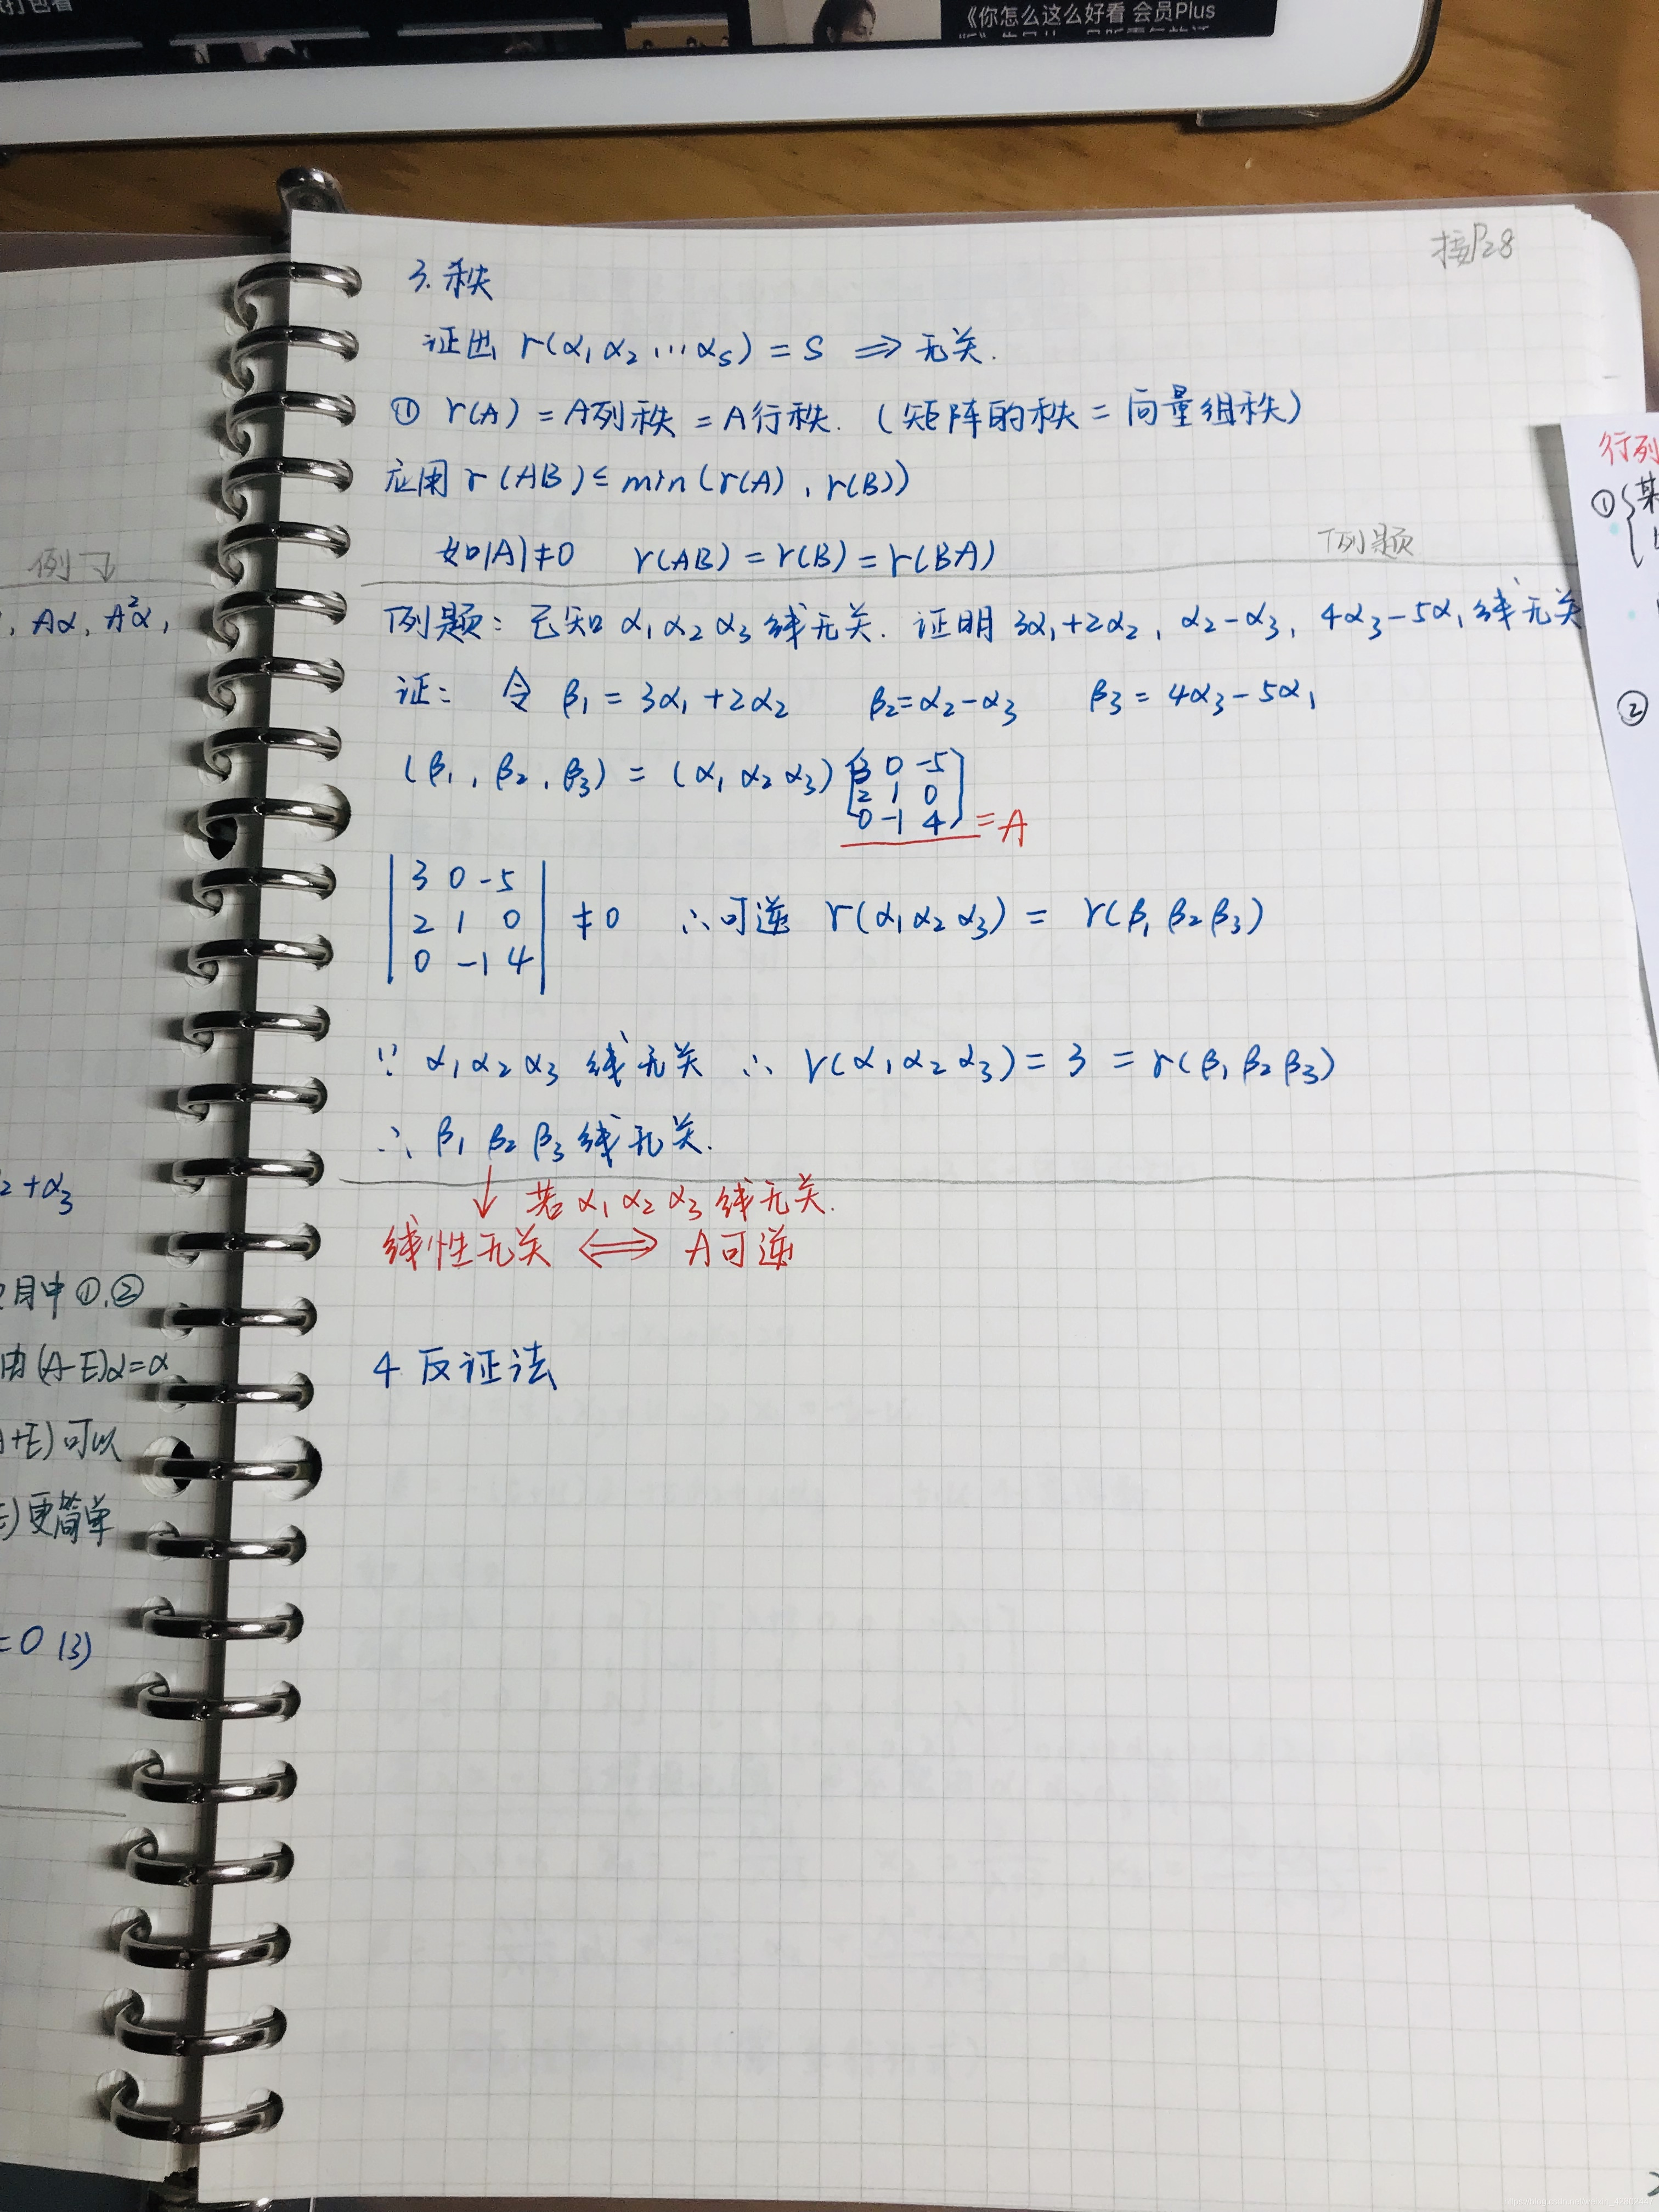 《你怎么这么好看 会员Plus
接P28
3. 秩
证出 r(α₁ α₂ … αs) = S ⇒ 无关.
① r(A) = A列秩 = A行秩. (矩阵的秩 = 向量组秩)
应用 r(AB) ≤ min(r(A), r(B))
如|A|≠0 r(AB) = r(B) = r(BA)
例题
例题: 已知 α₁ α₂ α₃ 线无关. 证明 3α₁+2α₂, α₂-α₃, 4α₃-5α₁ 线无关
证: 令 β₁ = 3α₁+2α₂ β₂=α₂-α₃ β₃ = 4α₃-5α₁
(β₁, β₂, β₃) = (α₁ α₂ α₃)
3 0 -5
2 1 0
0 -1 4
= A
3 0 -5
2 1 0
0 -1 4
≠0 ∴可逆 r(α₁ α₂ α₃) = r(β₁ β₂ β₃)
∵ α₁ α₂ α₃ 线无关 ∴ r(α₁ α₂ α₃) = 3 = r(β₁ β₂ β₃)
∴ β₁ β₂ β₃ 线无关.
↓ 若 α₁ α₂ α₃ 线无关.
线性无关 ⇔ A可逆
4 反证法
例
, Aα, A²α,
₂+α₃
目中 ①,②
由(A-E)α=α
+E)可以
)更简单
=0 (3)
行列
①
②